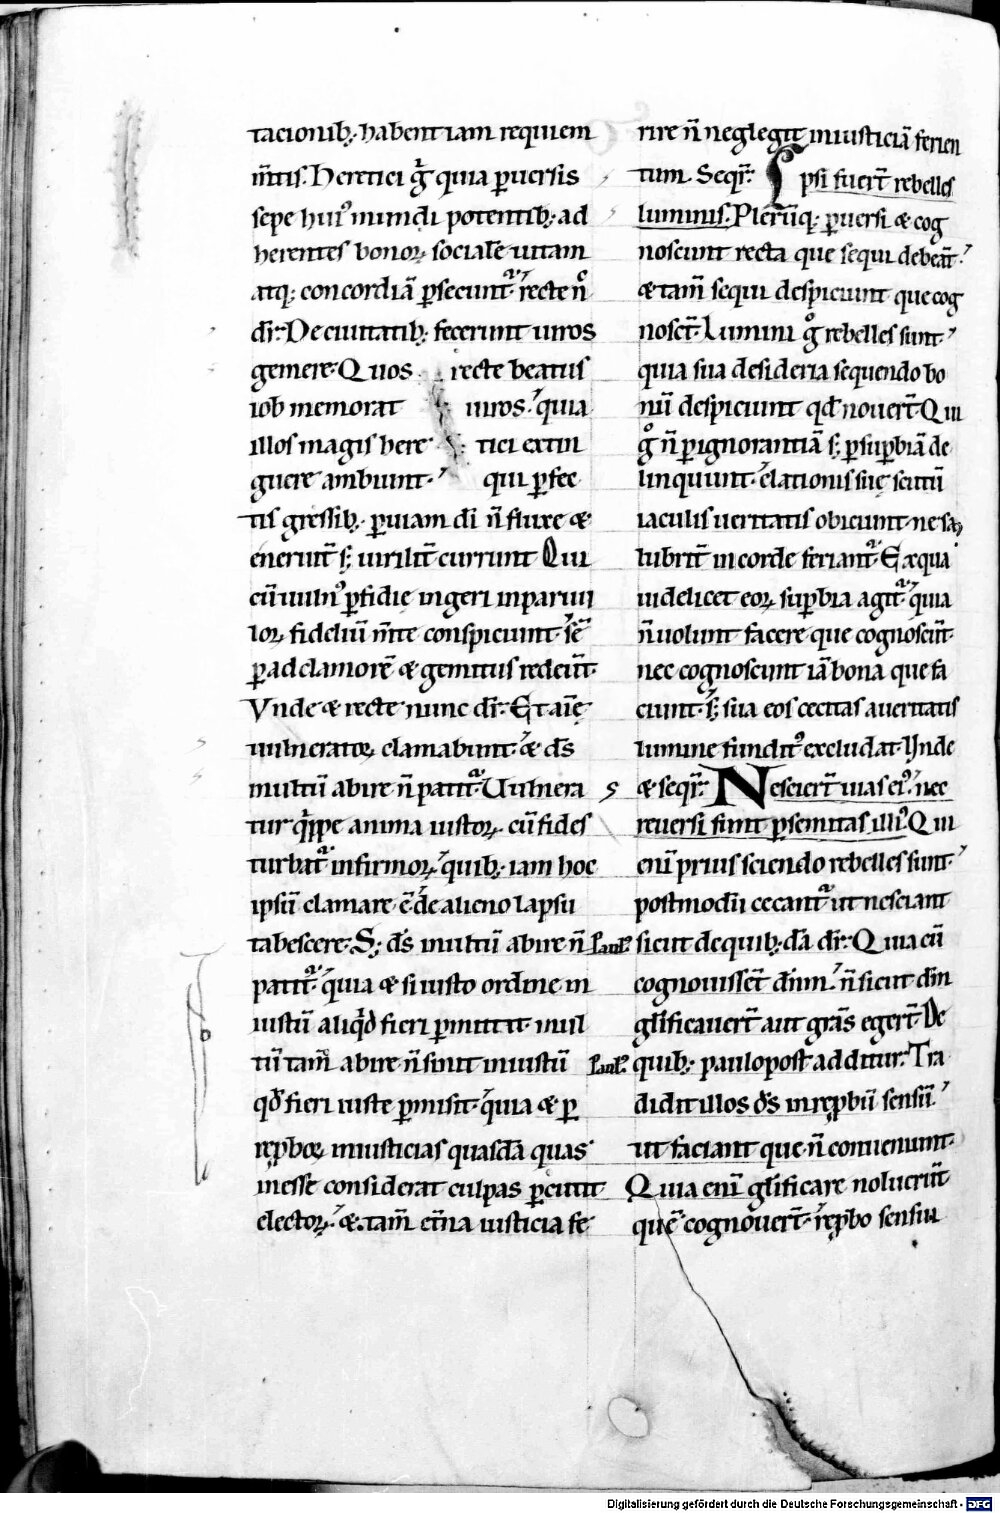 tacionib; habent iam requiem
m̃tis. Heretici g̊ quia ꝑuersis
sepe hui᷒ mundi potentib; ad
herentes bonoꝝ socialẽ uitam
atq; concordiã ꝑsecunt᷑. recte n̊
dr̃. De ciuitatib; fecerunt uiros
gemere. Quos recte beatus
iob memorat uiros. quia
illos magis here tici extin
guere ambiunt. qui ꝑfec
tis gressib; ꝑ uiam di ñ fluxe &
eneruit̃ s; uirilit̃ currunt. Qui
cũ uuln᷒ ꝑfidię ingeri in paruu
loꝝ fidelium m̃te conspiciunt. sẽ
ꝑ ad clamorẽ & gemitus redeũt.
Vnde & recte nunc dr̃. Et aĩę
uulneratoꝝ clamabunt. & ds̃
multũ abire ñ patit᷑. Uulnera
tur q̇ppe anima iustoꝝ cũ fides
turbat᷑ infirmoꝝ. quib; iam hoc
ipsũ clamare ẽ de alieno lapsu
tabescere. S; ds̃ inultũ abire ñ
patit᷑. quia & si iusto ordine in
iustũ aliqd̃ fieri ꝑmittit. inul
tũ tam̃ abire ñ sinit iniustũ
qd̃ fieri iuste ꝑmisit. quia & ꝑ
reꝓboꝝ iniusticias quasdã quas
inesse considerat culpas ꝑcutit
electoꝝ. & tam̃ et̃na iusticia fe
rire ñ neglegit iniusticiã ferien
tum. Seqr̃. Ipsi fuert̃ rebelles
luminis. Pleruq; ꝑuersi & cog
noscunt recta que sequi debeãt.
& tam̃ sequi despiciunt que cog
nosct̃. Lumini g̊ rebelles sunt.
quia sua desideria sequendo bo
nũ despiciunt qd̃ nouert̃. Qui
g̊ ñ ꝑ ignorantiã s; ꝑ suꝑbiã de
linquunt. elationis suę scutũ
iaculis ueritatis obiciunt. ne sa
lubrit̃ in corde feriant᷑. Ex qua
uidelicet eoꝝ suꝑbia agit᷑. quia
ñ uolunt facere que cognoscũt.
nec cognoscunt iã bona que fa
ciunt. s; sua eos cecitas a ueritatis
lumine fundit᷒ excludat. Unde
& seqr̃. Nesciert̃ uias ei᷒. nec
reuersi sunt ꝑ semitas illi᷒. Qui
enĩ prius sciendo rebelles sunt.
postmodũ cecant᷑ ut nesciant
Paul᷒ sicut de quib;dã dr̃. Quia cũ
cognouisset̃ dm̃. ñ sicut dm̃
glificauert̃ aut grãs egert̃. De
Paul᷒ quib; paulo post additur. Tra
didit illos ds̃ in reꝓbũ sensũ.
ut faciant que ñ conueniunt.
Quia enĩ glificare noluerũt
quẽ cognouert̃. reꝓbo sensui
Digitalisierung gefördert durch die Deutsche Forschungsgemeinschaft - DFG